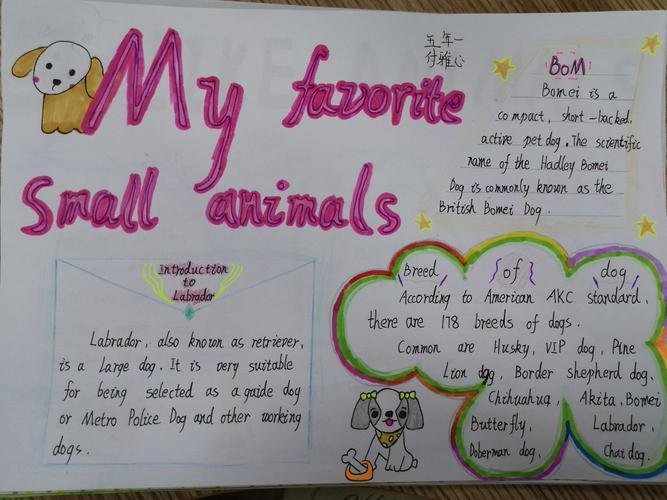 My favorite
small animals
五年一
付雅心
BoM
Bomei is a
compact, short-backed,
active pet dog. The scientific
name of the Hadley Bomei
Dog is commonly known as the
British Bomei Dog.
Introduction
to
Labrador
Labrador, also known as retriever,
is a Large dog. It is very suitable
for being selected as a guide dog
or Metro Police Dog and other working
dogs.
Breed of dog
According to American AKC standard,
there are 178 breeds of dogs.
Common are Husky, VIP dog, Pine
Lion dog, Border shepherd dog.
Chihuahua, Akita, Bomei
Butterfly, Labrador,
Doberman dog, Chai dog.